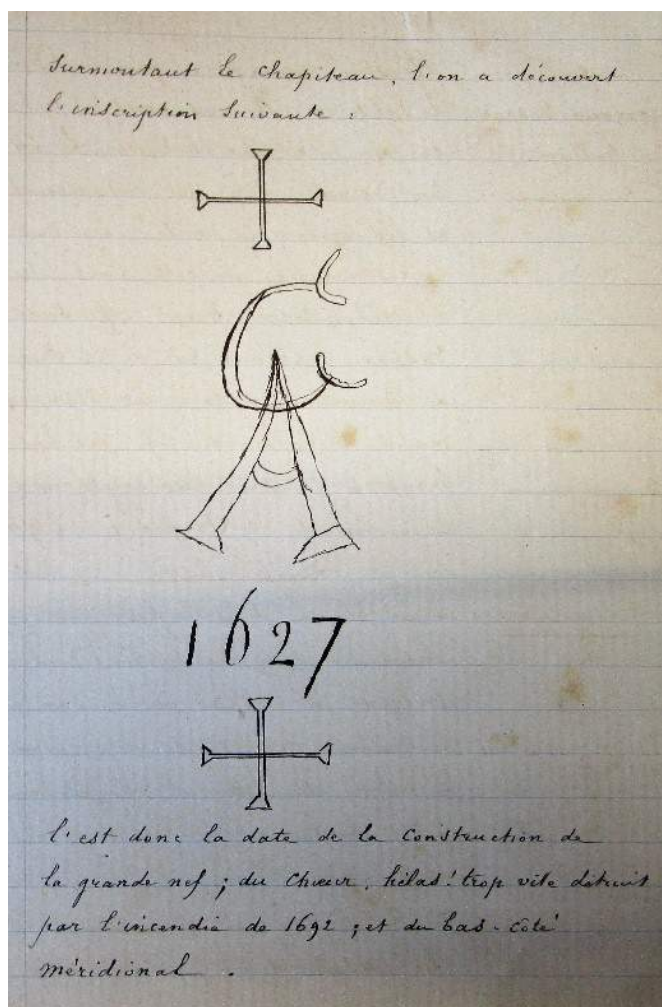 surmontant le chapiteau, l'on a découvert
l'inscription suivante :
C
A
1627
C'est donc la date de la construction de
la grande nef ; du chœur, hélas! trop vite détruit
par l'incendie de 1692 ; et du bas-côté
méridional.